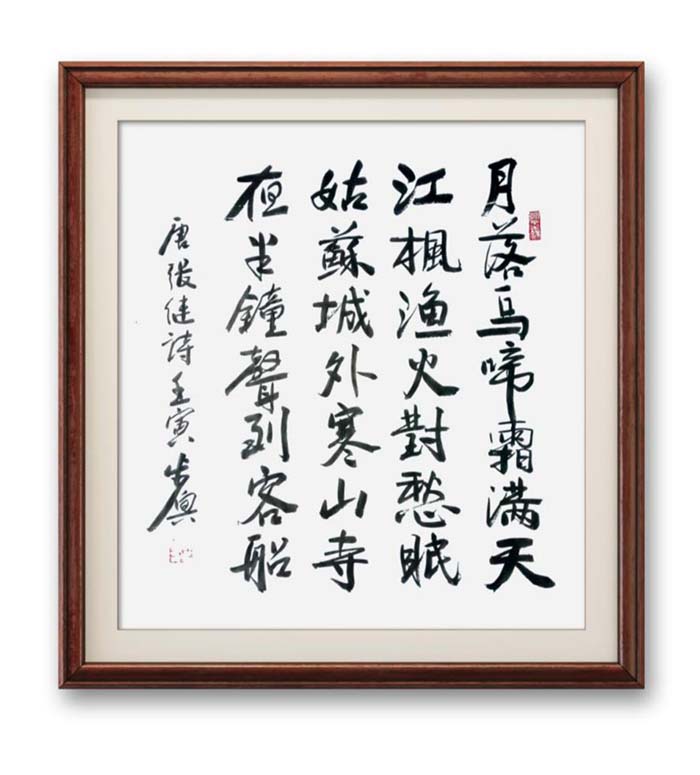 月落烏啼霜满天
江楓渔火對愁眠
姑蘇城外寒山寺
夜半鐘聲到客船
唐張继詩壬寅